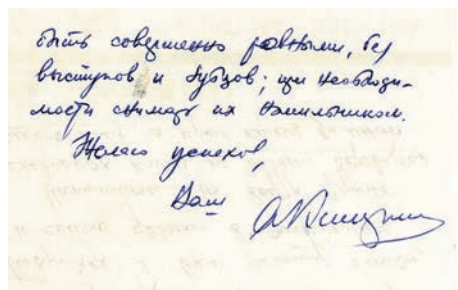 быть совершенно ровными, без
выступов и зубцов; при необходи-
мости снимаю их напильником.
Желаю успехов,
Ваш